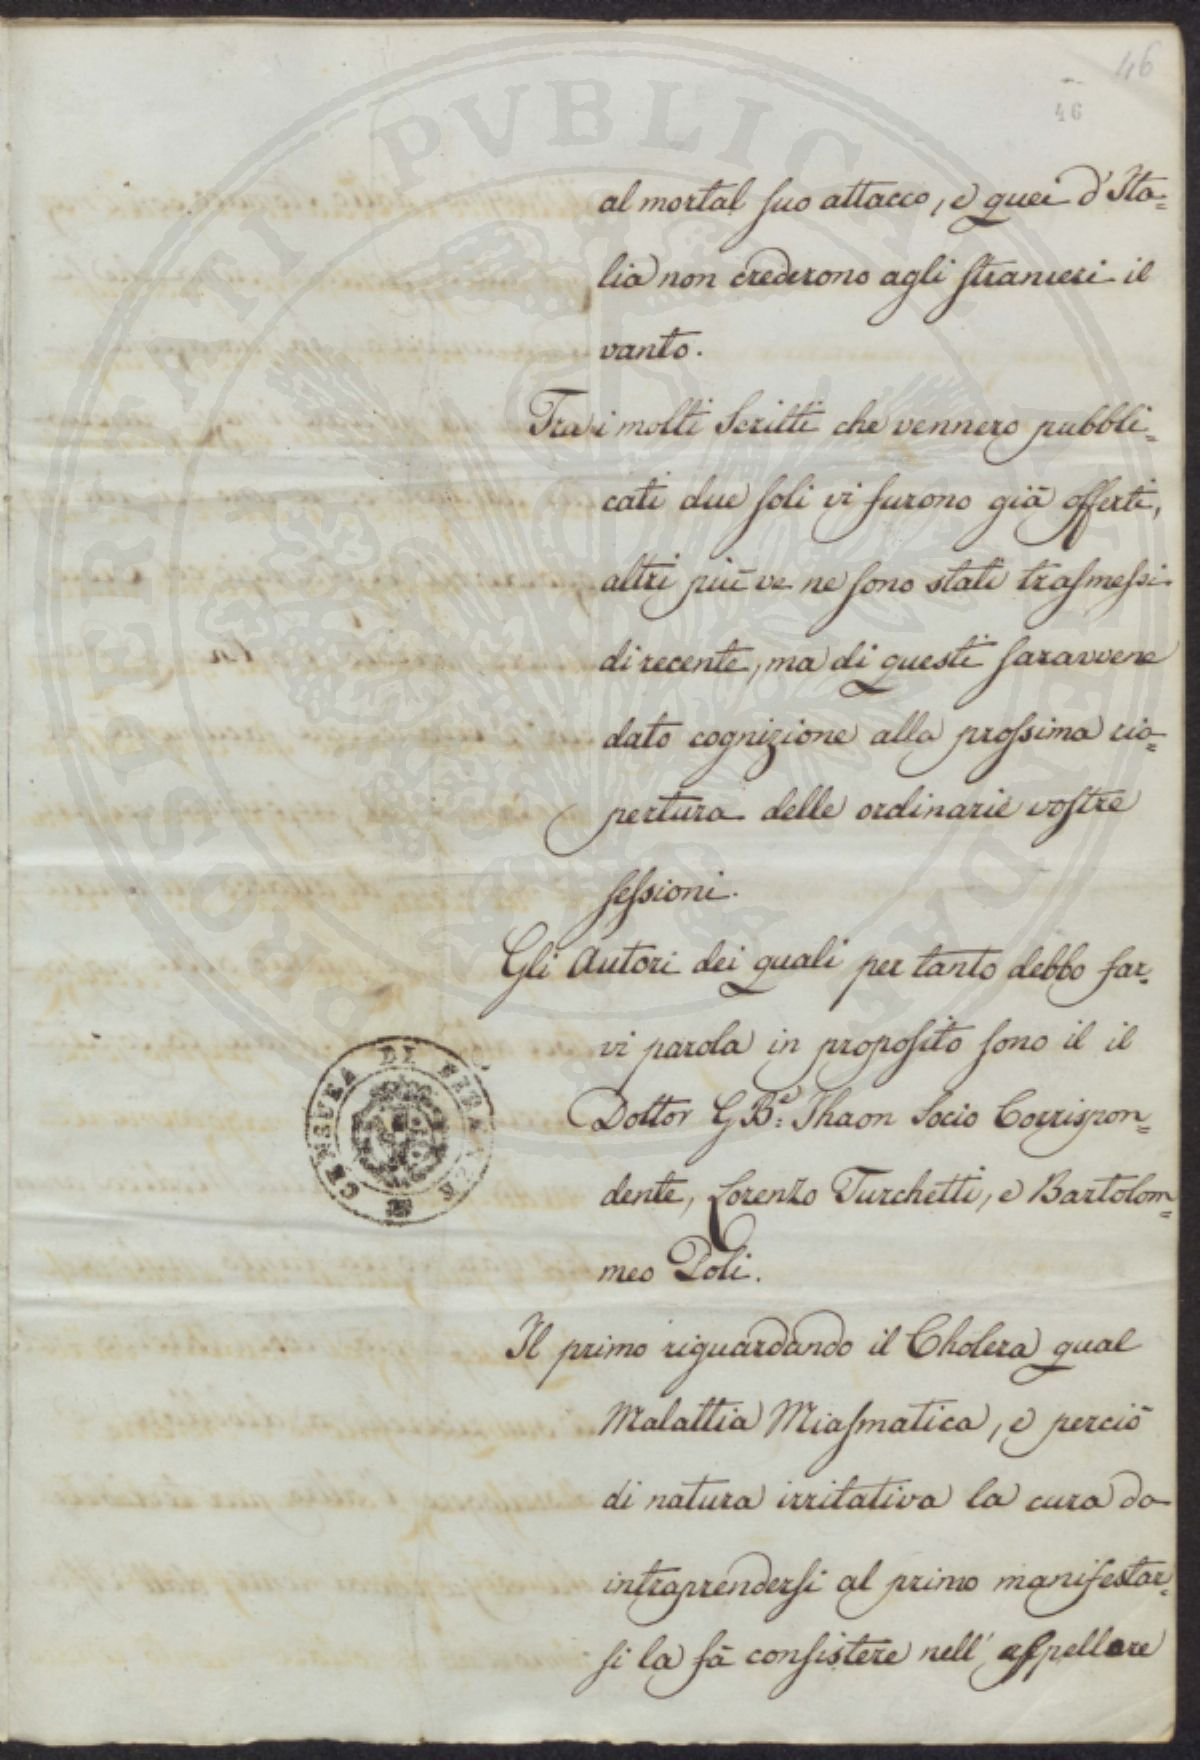 46
46
al mortal suo attacco, e quei d'Ita=
lia non crederono agli stranieri il
vanto.
Tra i molti Scritti che vennero pubbli=
cati due soli vi furono già offerti,
altri più ve ne sono stati trasmessi
di recente, ma di questi saravvene
dato cognizione alla prossima ria=
pertura delle ordinarie vostre
sessioni.
Gli Autori dei quali per tanto debbo far=
vi parola in proposito sono il il
Dottor G Bª: Thaon Socio Corrispon=
dente, Lorenzo Turchetti, e Bartolom=
meo Poli.
Il primo riguardando il Cholera qual
Malattia Miasmatica, e perciò
di natura irritativa la cura da
intraprendersi al primo manifestar=
si la fà consistere nell'espellere
PROSPERITATI PVBLICAE